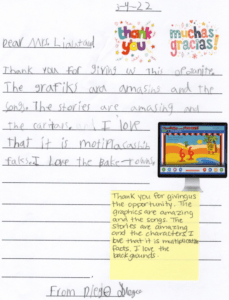 5-4-22
thank you
muchas gracias!
Dear Mrs
Thank you for giving us this
The grafiks and amasing and the
songs. The stories are amasing and
the I love
that it is
I Love the
Thank you for giving us
the opportunity. The
graphics are amazing
and the songs. The
stories are amazing
and the characters I
love that it is multiplication
facts. I love the
backgrounds.
From Diego